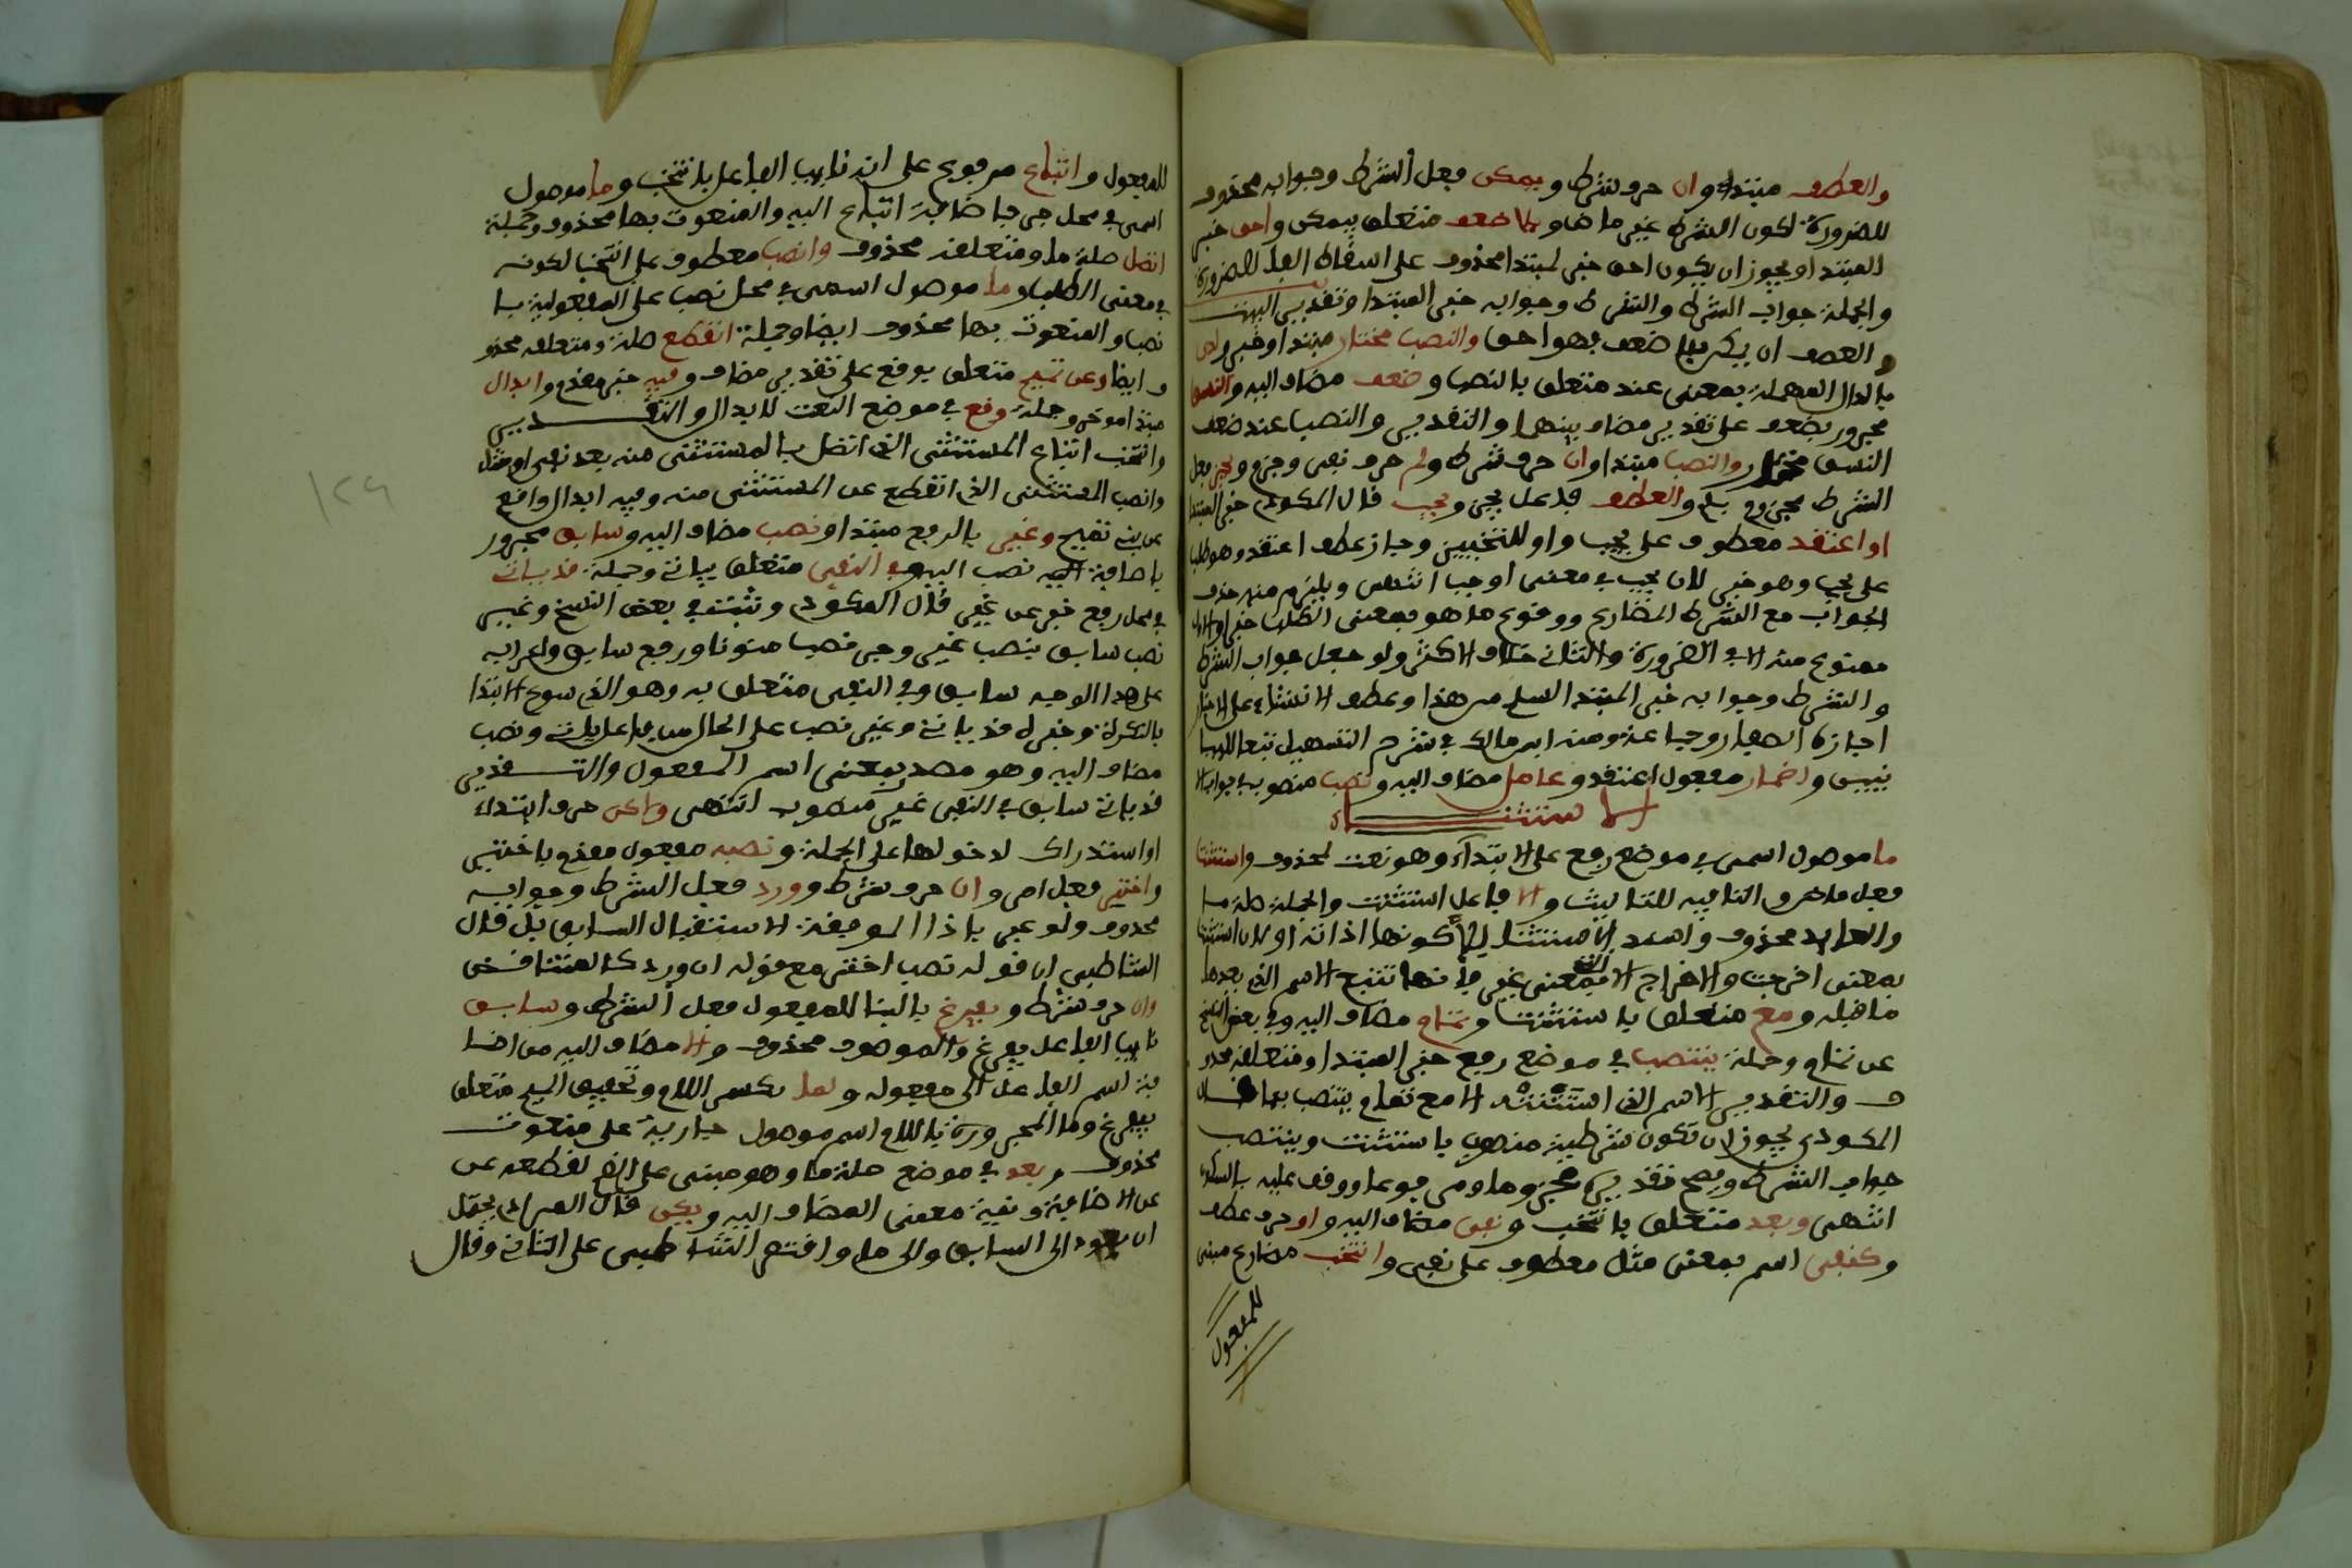 والعطف مبتدا وان حرف شرط ويمكن فعل الشرط وجوابه محذوف
للضرورة لكون الشرط غير ماض وبلا ضعف متعلق بيمكن واحق خبر
المبتدا ويجوز ان يكون احق خبر لمبتدا محذوف على اسقاط الفا للضرورة
والجملة جواب الشرط والشرط وجوابه خبر المبتدا وتقدير البيت
والعطف ان يمكن بلا ضعف فهو احق والنصب مختار مبتدا وخبر ولدى
بالدال المهملة بمعنى عند متعلق بالنصب وضعف مضاف اليه والنسق
مجرور بضعف على تقدير مضاف بينهما والتقدير والنصب عند ضعف
النسق مختار والنصب مبتدا وان حرف شرط ولم حرف نفي وجزم ويجز فعل
الشرط مجزوم بلم والعطف فاعل يجز ويجب قال المكودي خبر المبتدا
او اعتقد معطوف على يجب واو للتخيير وجاز عطف اعتقد وهو طلب
على يجب وهو خبر لان يجب في معنى اوجب انتهى ويلزم منه حذف
الجواب مع الشرط المضارع ووقوع ما هو بمعنى الطلب خبرا والاول
ممنوع منه الا في الضرورة والثاني خلاف الاكثر ولو جعل جواب الشرط
والشرط وجوابه خبر المبتدا لسلم من هذا وعطف الانشاء على الخبر
اجازه الصفار وجماعة ومنه ابن مالك في شرح التسهيل تبعا للبيا
نيين واضمار مفعول اعتقد وعامل مضاف اليه وتصب منصوب في جوابه
الاستثناء
ما موصول اسمي في موضع رفع على الابتداء وهو نعت لمحذوف واستثنت
فعل ماض والتا فيه للتانيث والا فاعل استثنت والجملة صلة ما
والعايد محذوف واسند الاستثنا لالا لكونها اداته او لان استثنت
بمعنى اخرجت والاخراج الا التي بمعنى غير فانها تتبع الاسم الذي بعدها
ما قبله ومع متعلق باستثنت وتمام مضاف اليه وفي بعض النسخ
عن تمام وجملة ينتصب في موضع رفع خبر المبتدا ومتعلقه محذو
ف والتقدير الاسم الذي استثنته الا مع تمام ينتصب بها قال
المكودي يجوز ان تكون شرطية منصوب باستثنت وينتصب
جواب الشرط ويصح تقديره مجزوما ومرفوعا ووقف عليه بالسكون
انتهى وبعد متعلق بانتخب ونفي مضاف اليه واو حرف عطف
وكنفي اسم بمعنى مثل معطوف على نفي وانتخب مضارع مبني
للمفعول
للمفعول واتباع مرفوع على انه نايب الفاعل بانتخب وما موصول
اسمي في محل جر باضافة اتباع اليه والمنعوت بها محذوف وجملة
اتصل صلة ما ومتعلقه محذوف وانصب معطوف على انتخب لكونه
في معنى الطلب وما موصول اسمي في محل نصب على المفعولية با
نصب والمنعوت بها محذوف ايضا وجملة انقطع صلة ومتعلقه محذو
ف ايضا وعن تميم متعلق بوقع على تقدير مضاف وفيه خبر مقدم وابدال
مبتدا موخر وجملة وقع في موضع النعت لابدال والتقدير
وانتخب اتباع المستثنى الذي اتصل بالمستثنى منه بعد نفي او مثله
وانصب المستثنى الذي انقطع عن المستثنى منه وفيه ابدال واقع
عن بني تميم وغير بالرفع مبتدا ونصب مضاف اليه وسابق مجرور
باضافة نصب اليه وفي النفي متعلق بياتي وجملة قد ياتي
في محل رفع خبر عن غير قال المكودي وثبت في بعض النسخ وغير
نصب سابق بنصب غير وجر نصب منونا ورفع سابق واعرابه
على هذا الوجه سابق وفي النفي متعلق به وهو الذي سوغ الابتدا
بالنكرة وخبره قد ياتي وغير نصب على الحال من فاعل ياتي ونصب
مضاف اليه وهو مصدر بمعنى اسم المفعول والتقدير
قد ياتي سابق في النفي غير منصوب انتهى ولكن حرف ابتداء
او استدراك لدخولها على الجملة ونصبه مفعول مقدم باختر
واختر فعل امر وان حرف شرط وورد فعل الشرط وجوابه
محذوف ولو عبر باذا الموضوعة الاستقبال السابق بل قال
الشاطبي ان قوله نصب اختر مع قوله ان ورد كالمتناقض
وان حرف شرط ويفرغ بالبنا للمفعول فعل الشرط وسابق
نايب الفاعل يفرغ والموصوف محذوف والا مضاف اليه من اضا
فة اسم الفاعل الى مفعوله ولما بكسر اللام وتخفيف الميم متعلق
بيفرغ وما المجرورة باللام اسم موصول جارية على منعوت
محذوف وبعد في موضع صلة ما وهو مبني على الضم لقطعه عن
عن الاضافة ونية معنى المضاف اليه ويكن قال المرادي يحتمل
ان يعود الى السابق والى ما واقتصر الشاطبي على الثاني وقال
١٢٩